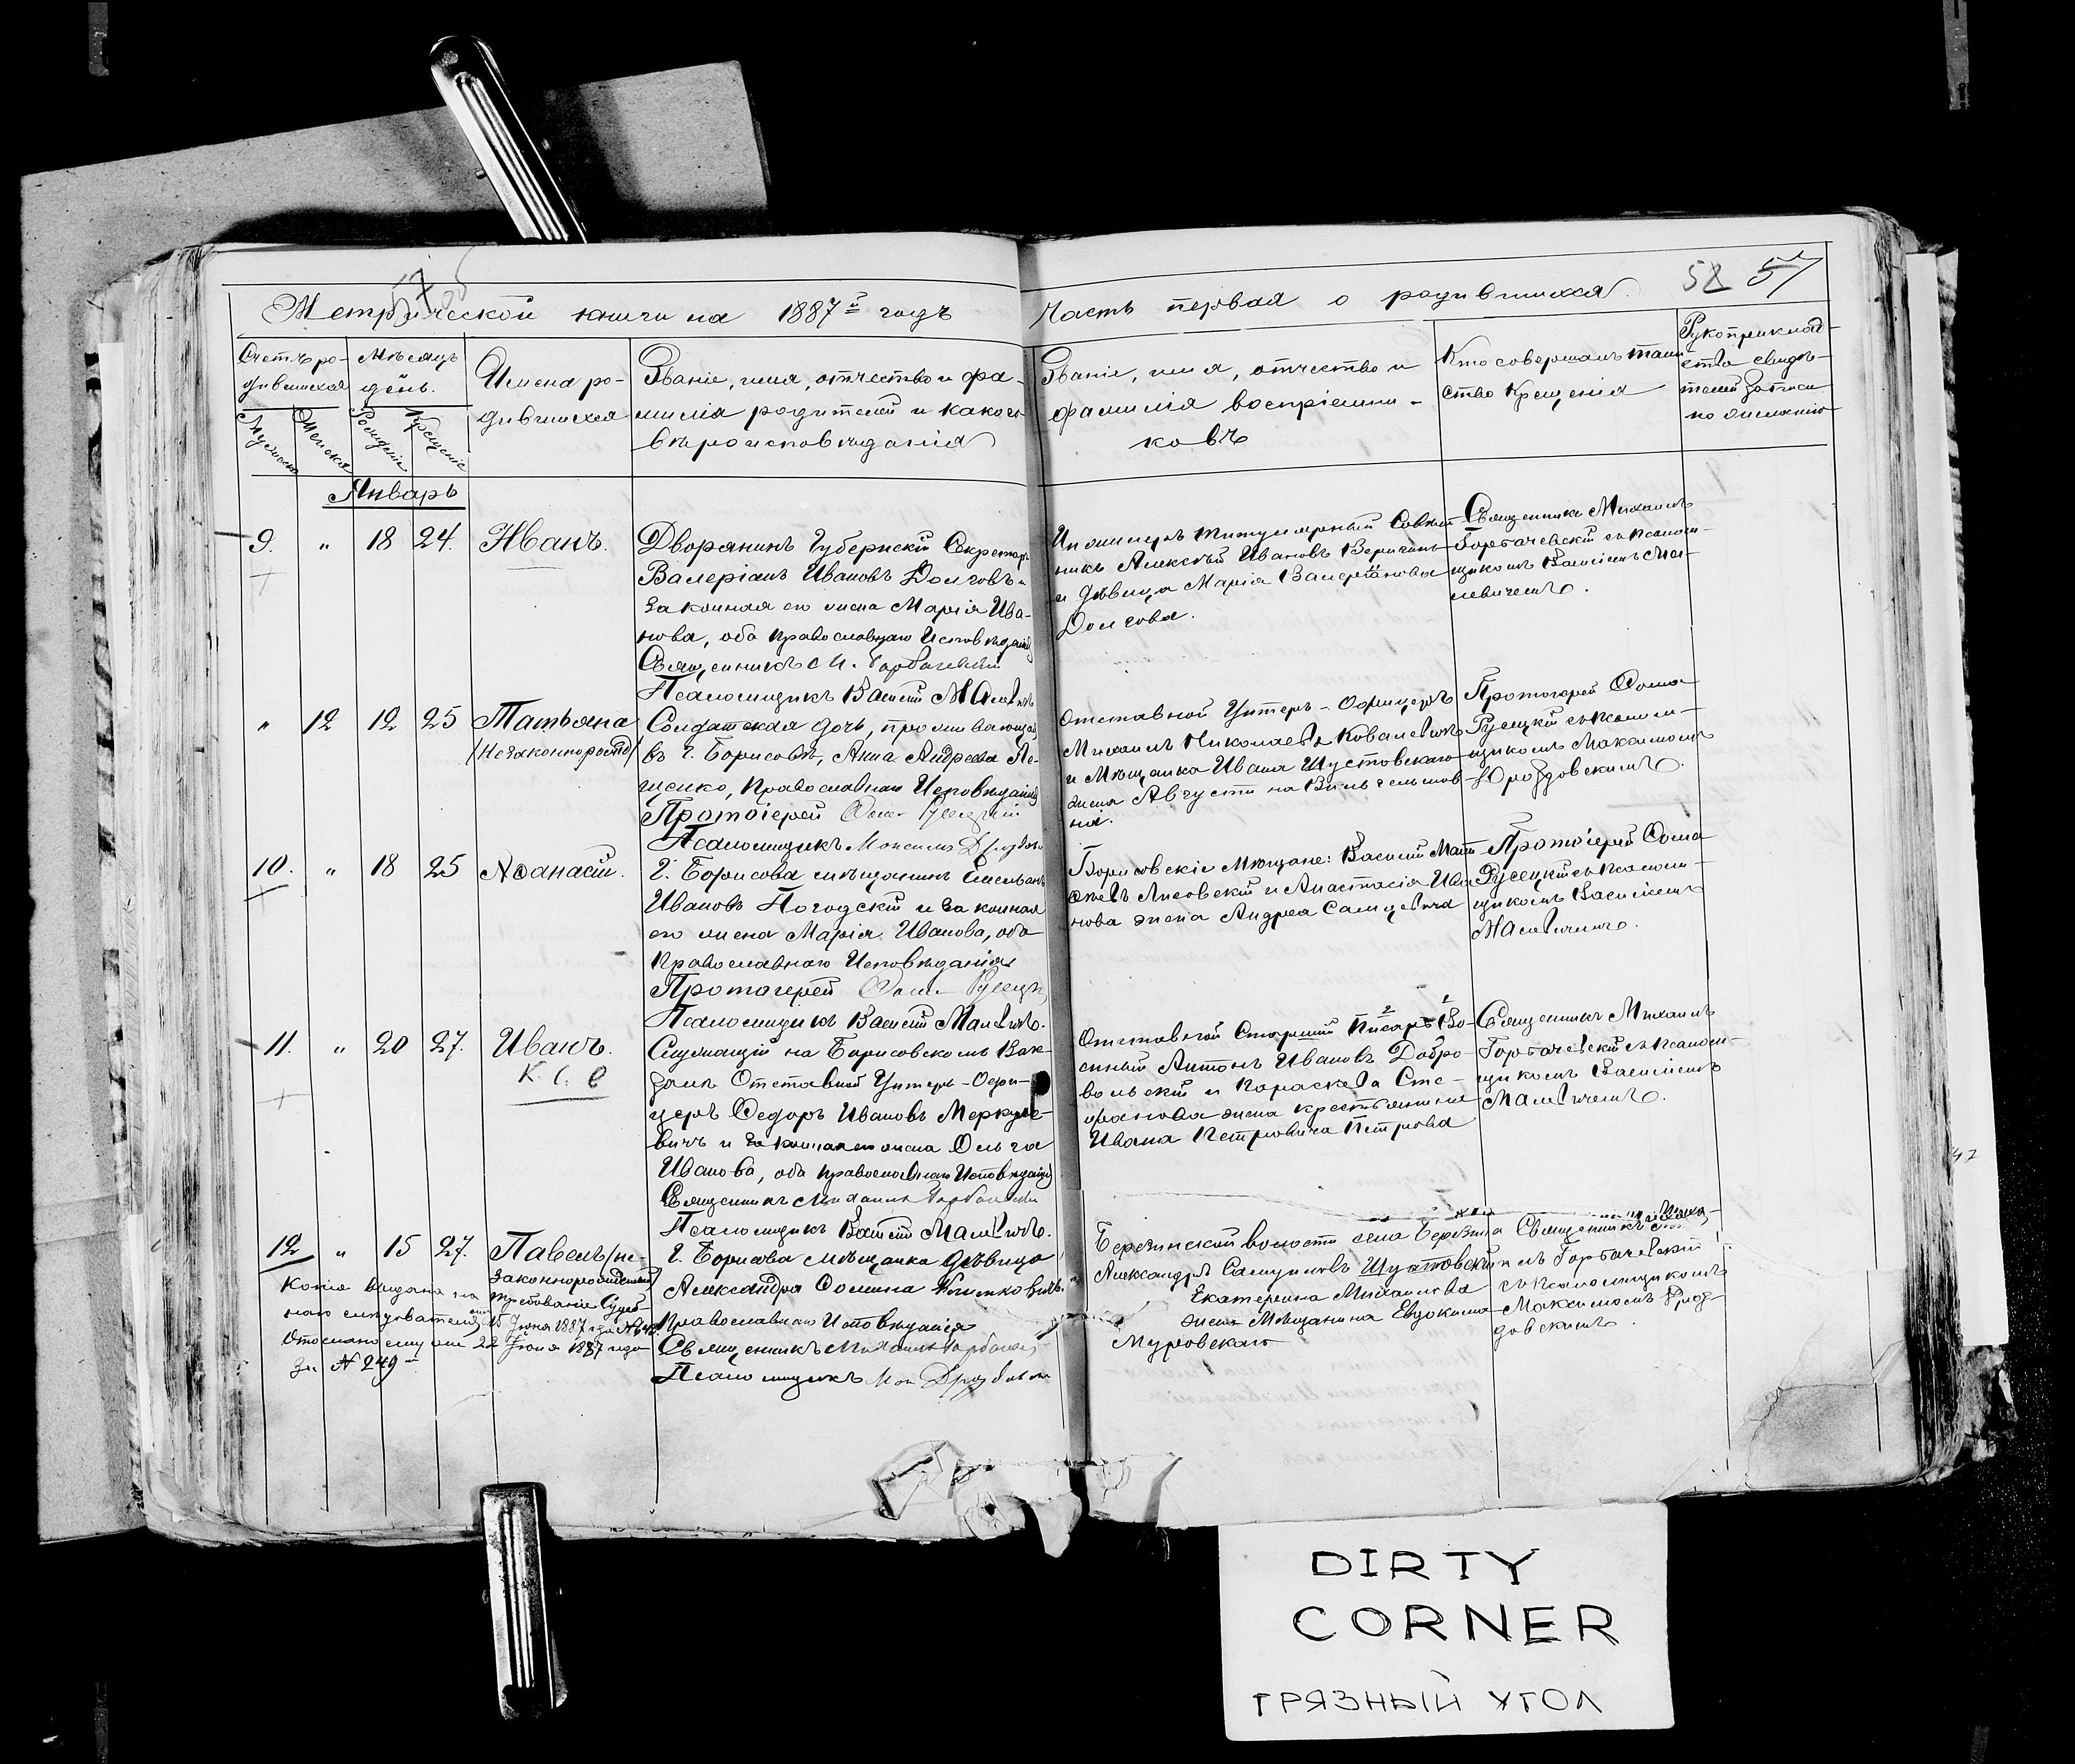 58 57
Метрической книги на 1887й годъ
Часть первая о родившихся.
Счетъ ро-
дившихся
Мужеска
Женска
Мѣсяцъ
день.
Рожденіе
Крещеніе
Имена ро-
дившихся
Званіе, имя, отчество и фа-
милія родителей и какого
вѣроисповѣданія
Званіе, имя, отчество и
фамилія воспріемни-
ковъ
Кто совершалъ таин-
ство Крещенія
Рукоприклад-
ство свидѣ-
телей записи
по желанію
Январь
9. " 18 24. Иванъ.
Дворянинъ Губернскій Секретарь
Валеріанъ Ивановъ Долговъ и
законная его жена Марія Ива-
нова, оба православнаго Исповѣданія
Священникъ М. Горбачевскій
Псаломщикъ Василій Малевичъ
Инженеръ Титулярный Совѣт-
никъ Алексѣй Ивановъ Веригинъ
и дѣвица Марія Валеріанова
Долгова.
Священникъ Михаилъ
Горбачевскій съ псалом-
щикомъ Василіемъ Ма-
левичемъ.
" 12 12 25 Татьяна
(Незаконнорожд)
Солдатская дочь, проживающая
въ г. Борисовѣ, Анна Андреева Ле-
щенко, Православнаго Исповѣданія
Протоіерей Фома Русецкій
Псаломщикъ Максимъ Дроздовск
Отставной Унтеръ-Офицеръ
Михаилъ Николаевъ Ковалевичъ
и Мѣщанка Ивана Шустовскаго
жена Августина Вильгельмов-
на.
Протоіерей Фома
Русецкій съ псалом-
щикомъ Максимомъ
Дроздовскимъ.
10. " 18 25 Аѳанасій.
Г. Борисова мѣщанинъ Емельянъ
Ивановъ Погодскій и законная
его жена Марія Иванова, оба
Православнаго Исповѣданія
Протоіерей Фома Русецк
Псаломщикъ Василій Малевичъ.
Борисовскіе Мѣщане: Василій Мат-
ѳеевъ Лисовскій и Анастасія Ива-
нова жена Андрея Самцевича
Протоіерей Фома
Русецкій съ псалом-
щикомъ Василіемъ
Малевичемъ.
11. " 20 27. Иванъ.
Служащій на Борисовскомъ Вок-
залѣ Отставной Унтеръ-Офи-
церъ Федоръ Ивановъ Меркуле-
вичъ и законная его жена Ольга
Иванова, оба православнаго Исповѣданія
Священникъ Михаилъ Горбачевскій
Псаломщикъ Василій Малевичъ.
Отставной Старшій Писарь Во-
енный Антонъ Ивановъ Добро-
вольскій и Параскева Сте-
фанова жена крестьянина
Ивана Петровича Петрова
Священникъ Михаилъ
Горбачевскій съ псалом-
щикомъ Василіемъ
Малевичемъ.
12 " 15 27. Павелъ (не-
законнорожденный)
Г. Борисова мѣщанка дѣвица
Александра Фомина Климковичъ.
Православнаго Исповѣданія
Священникъ Михаилъ Горбачев
Псаломщикъ Мак Дроздовск
Березинской волости села Березина
Александръ Самуиловъ Шустовскій и
Екатерина Михаилова
жена Мѣщанина Евдокима
Муровскаго
Священникъ Миха-
илъ Горбачевскій
съ псаломщикомъ
Максимомъ Дроз-
довскимъ.
Копія выдана на требованіе Судеб-
наго слѣдователя отъ 15 Іюня 1887 года
Отослано ему отъ 22 Іюня 1887 года
за № 249
47
DIRTY
CORNER
ГРЯЗНЫЙ УГОЛ